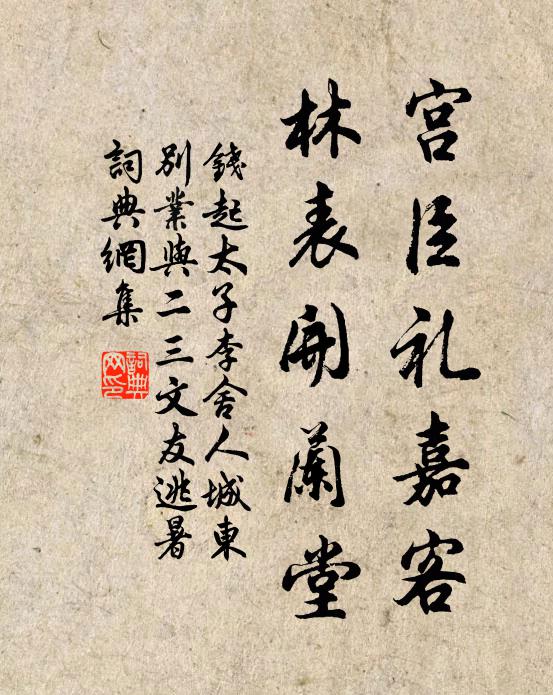 宫臣礼嘉客
林表開蘭堂
錢起太子李舍人城東
別業與二三文友逃暑
詞典網集
詞典網印